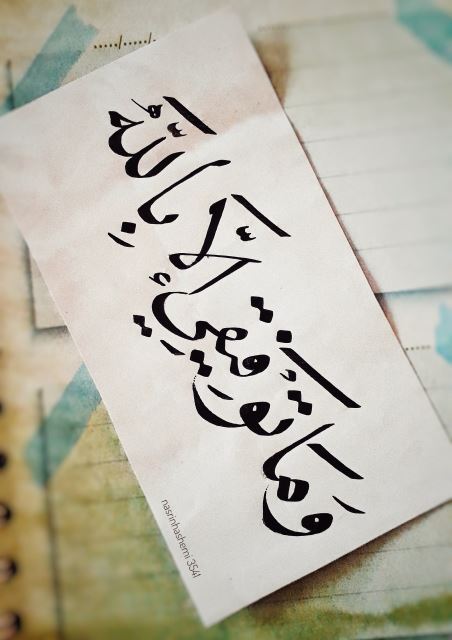 وَمَا تَوْفِیقِی إِلَّا بِاللّٰهِ
nasrinhashemi 3541